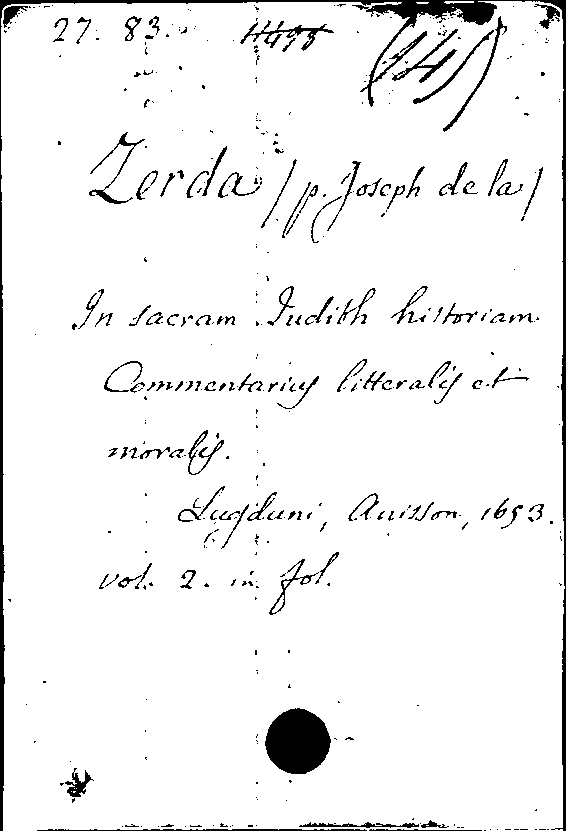 27. 83. (14)
Zerda / p. Joseph de la /
In sacram Judith historiam
Commentarius litteralis et
moralis.
Lugduni, Anisson, 1653.
vol. 2. in fol.